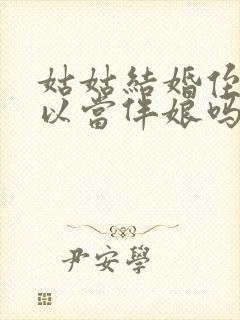 姑姑結婚侄
以當伴娘嗎
尹安學